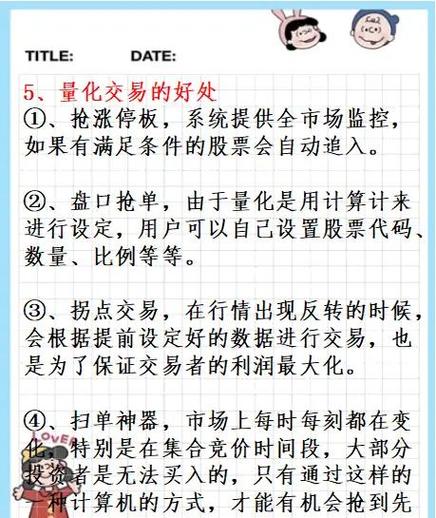 TITLE: DATE:
5、量化交易的好处
①、抢涨停板，系统提供全市场监控，
如果有满足条件的股票会自动追入。
②、盘口抢单，由于量化是用计算计来
进行设定，用户可以自己设置股票代码、
数量、比例等等。
③、拐点交易，在行情出现反转的时候，
会根据提前设定好的数据进行交易，也
是为了保证交易者的利润最大化。
④、扫单神器，市场上每时每刻都在变
化，特别是在集合竞价时间段，大部分
投资者是无法买入的，只有通过这样的
一种计算机的方式，才能有机会抢到先
LOVER